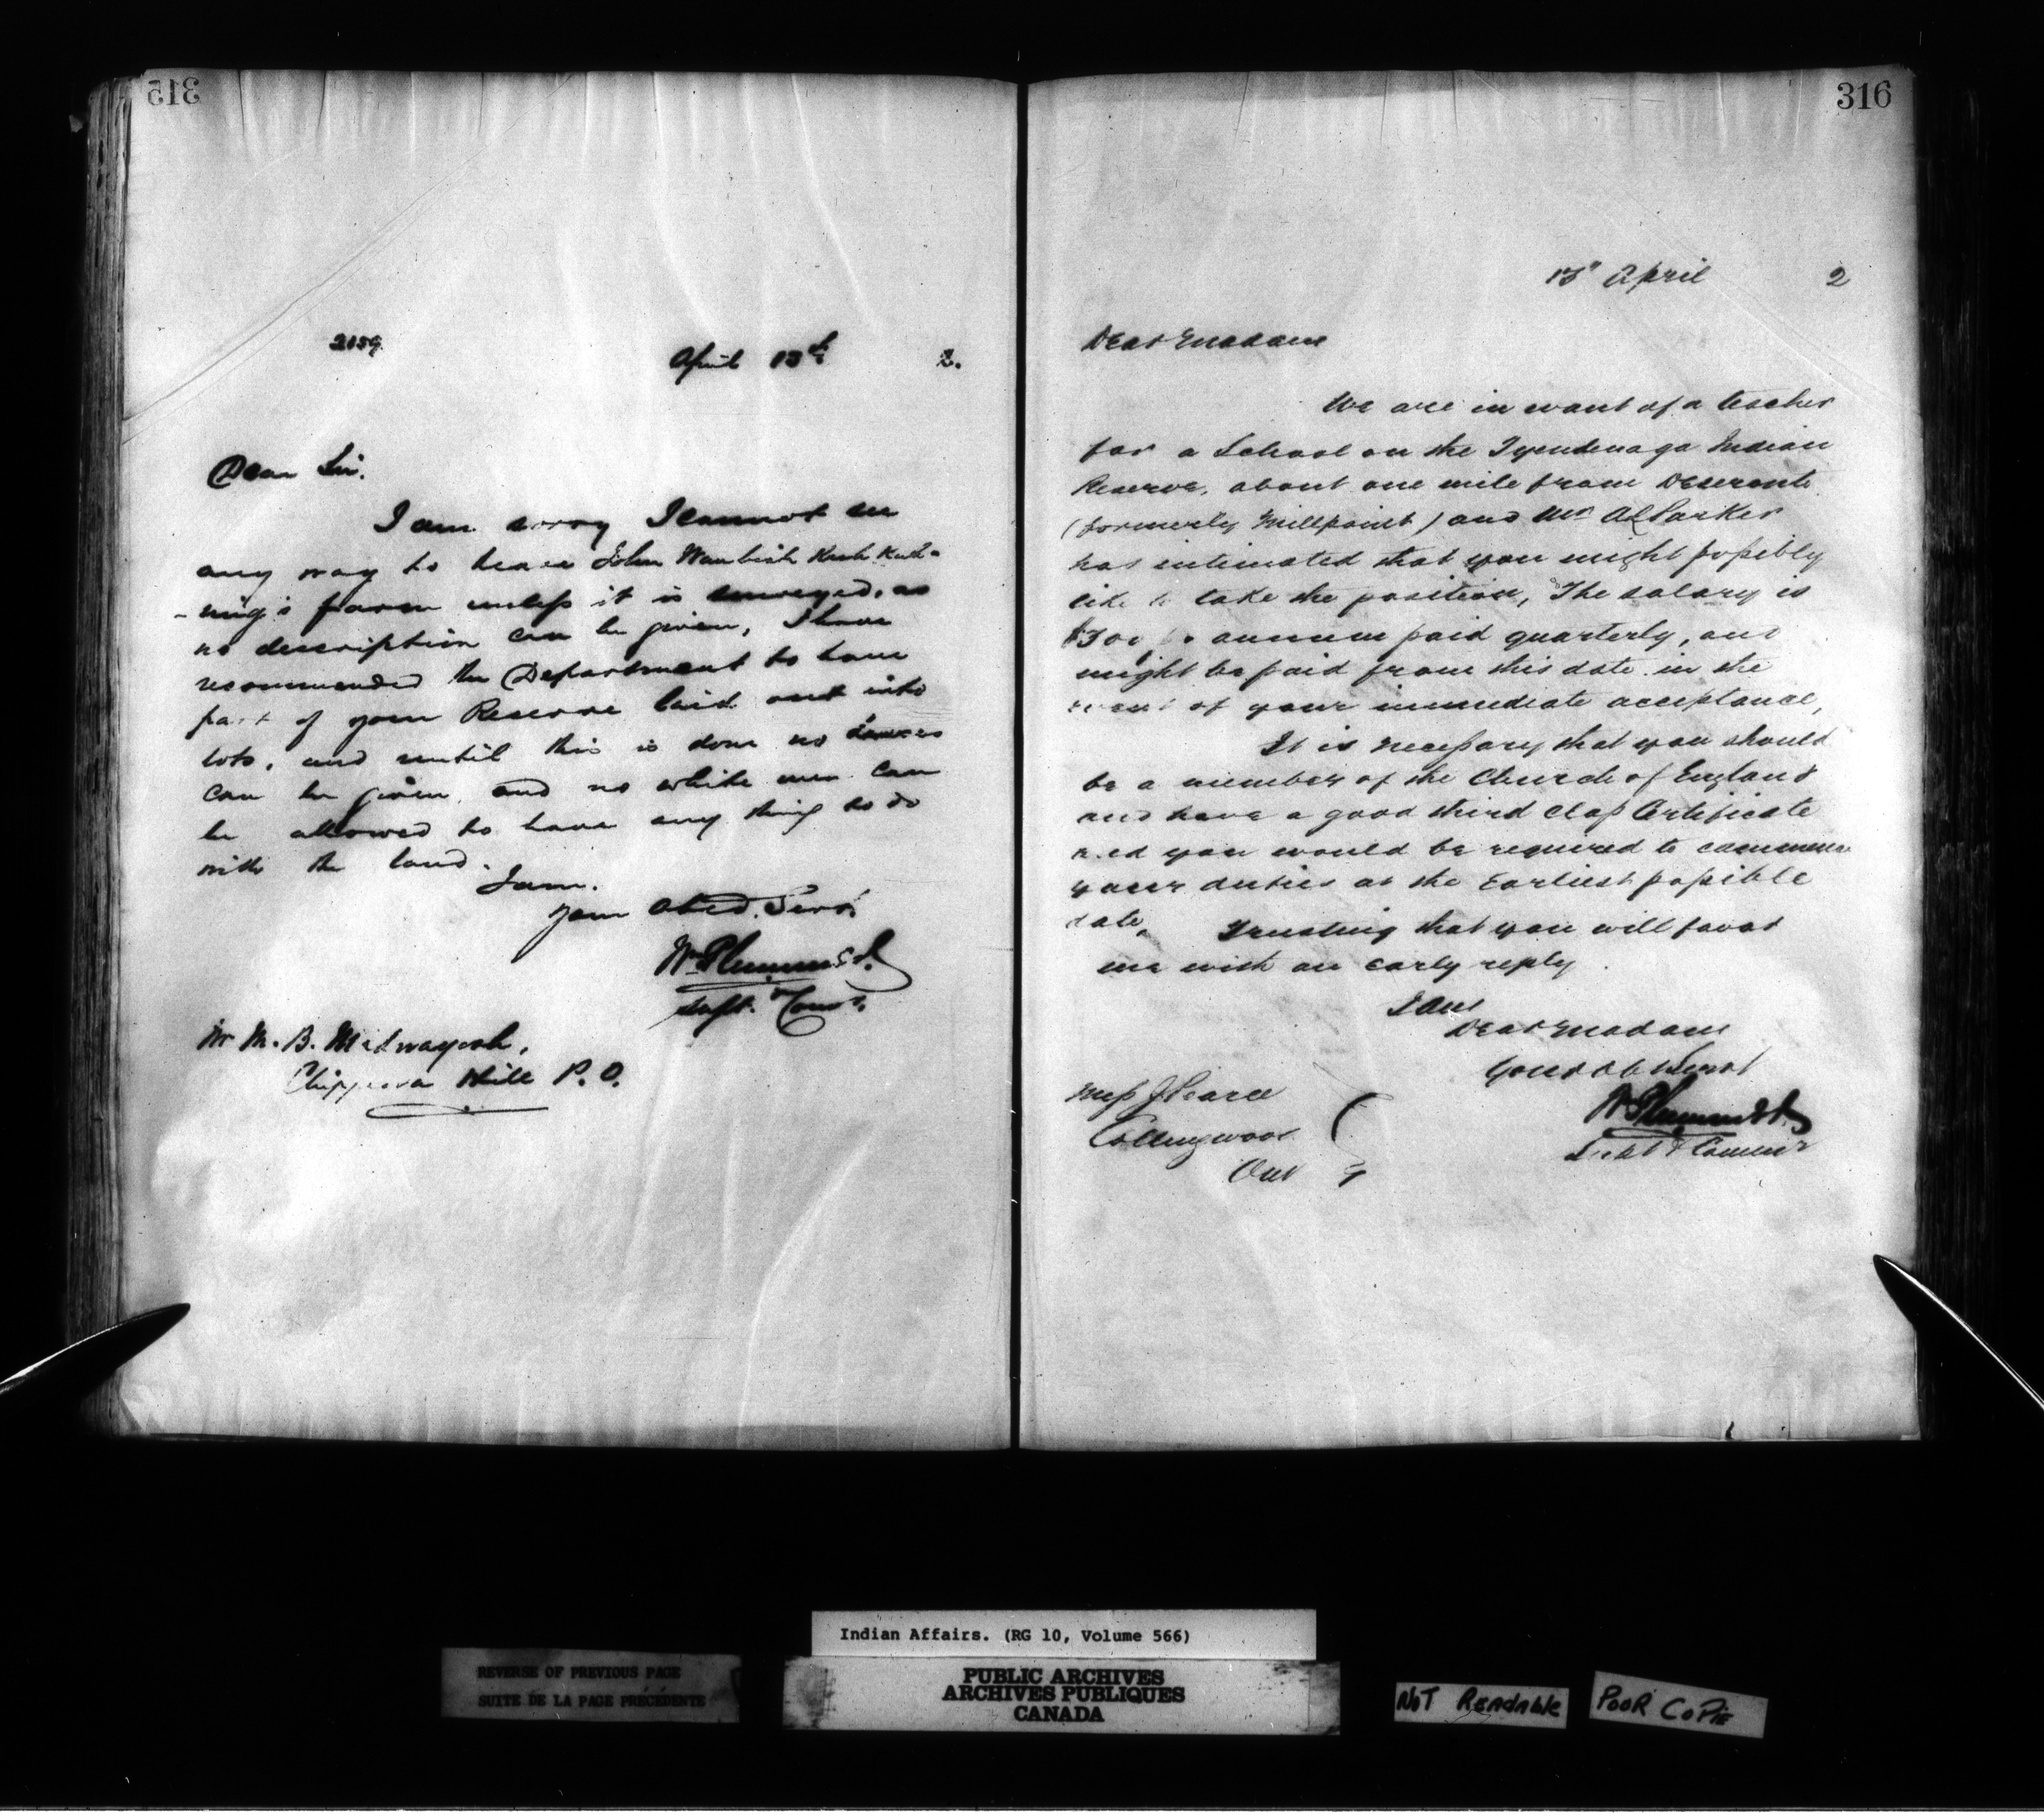 315
2159
April 13th 2.
Dear Sir.
I am sorry I cannot see
any way to lease John Waubish Kush Kush-
-ning's farm unless it is surveyed, as
no description can be given, I have
recommended the Department to have
part of your Reserve laid out into
lots, and until this is done no leases
can be given, and no white men can
be allowed to have any thing to do
with the land.
I am.
Your Obed. Servt.
Wm Plummer
Supt. & Comr.
Mr M. B. Madwayosh,
Chippewa Hill P. O.
316
13" April 2
Dear Madam
We are in want of a teacher
for a School on the Tyendenaga Indian
Reserve, about one mile from Deseronto
(formerly Millpoint) and Mr Parker
has intimated that you might possibly
like to take the position, The salary is
$300 annum paid quarterly, and
might be paid from this date in the
event of your immediate acceptance,
It is necessary that you should
be a member of the Church of England
and have a good third class Certificate
and you would be required to commence
your duties at the Earliest possible
date, Trusting that you will favor
me with an early reply.
I am
Dear Madam
Your Obt Servt
Wm Plummer
Supt & Commr
Miss
Collingwood
Ont
Indian Affairs. (RG 10, Volume 566)
REVERSE OF PREVIOUS PAGE
SUITE DE LA PAGE PRÉCÉDENTE
PUBLIC ARCHIVES
ARCHIVES PUBLIQUES
CANADA
NOT READABLE
POOR COPIE